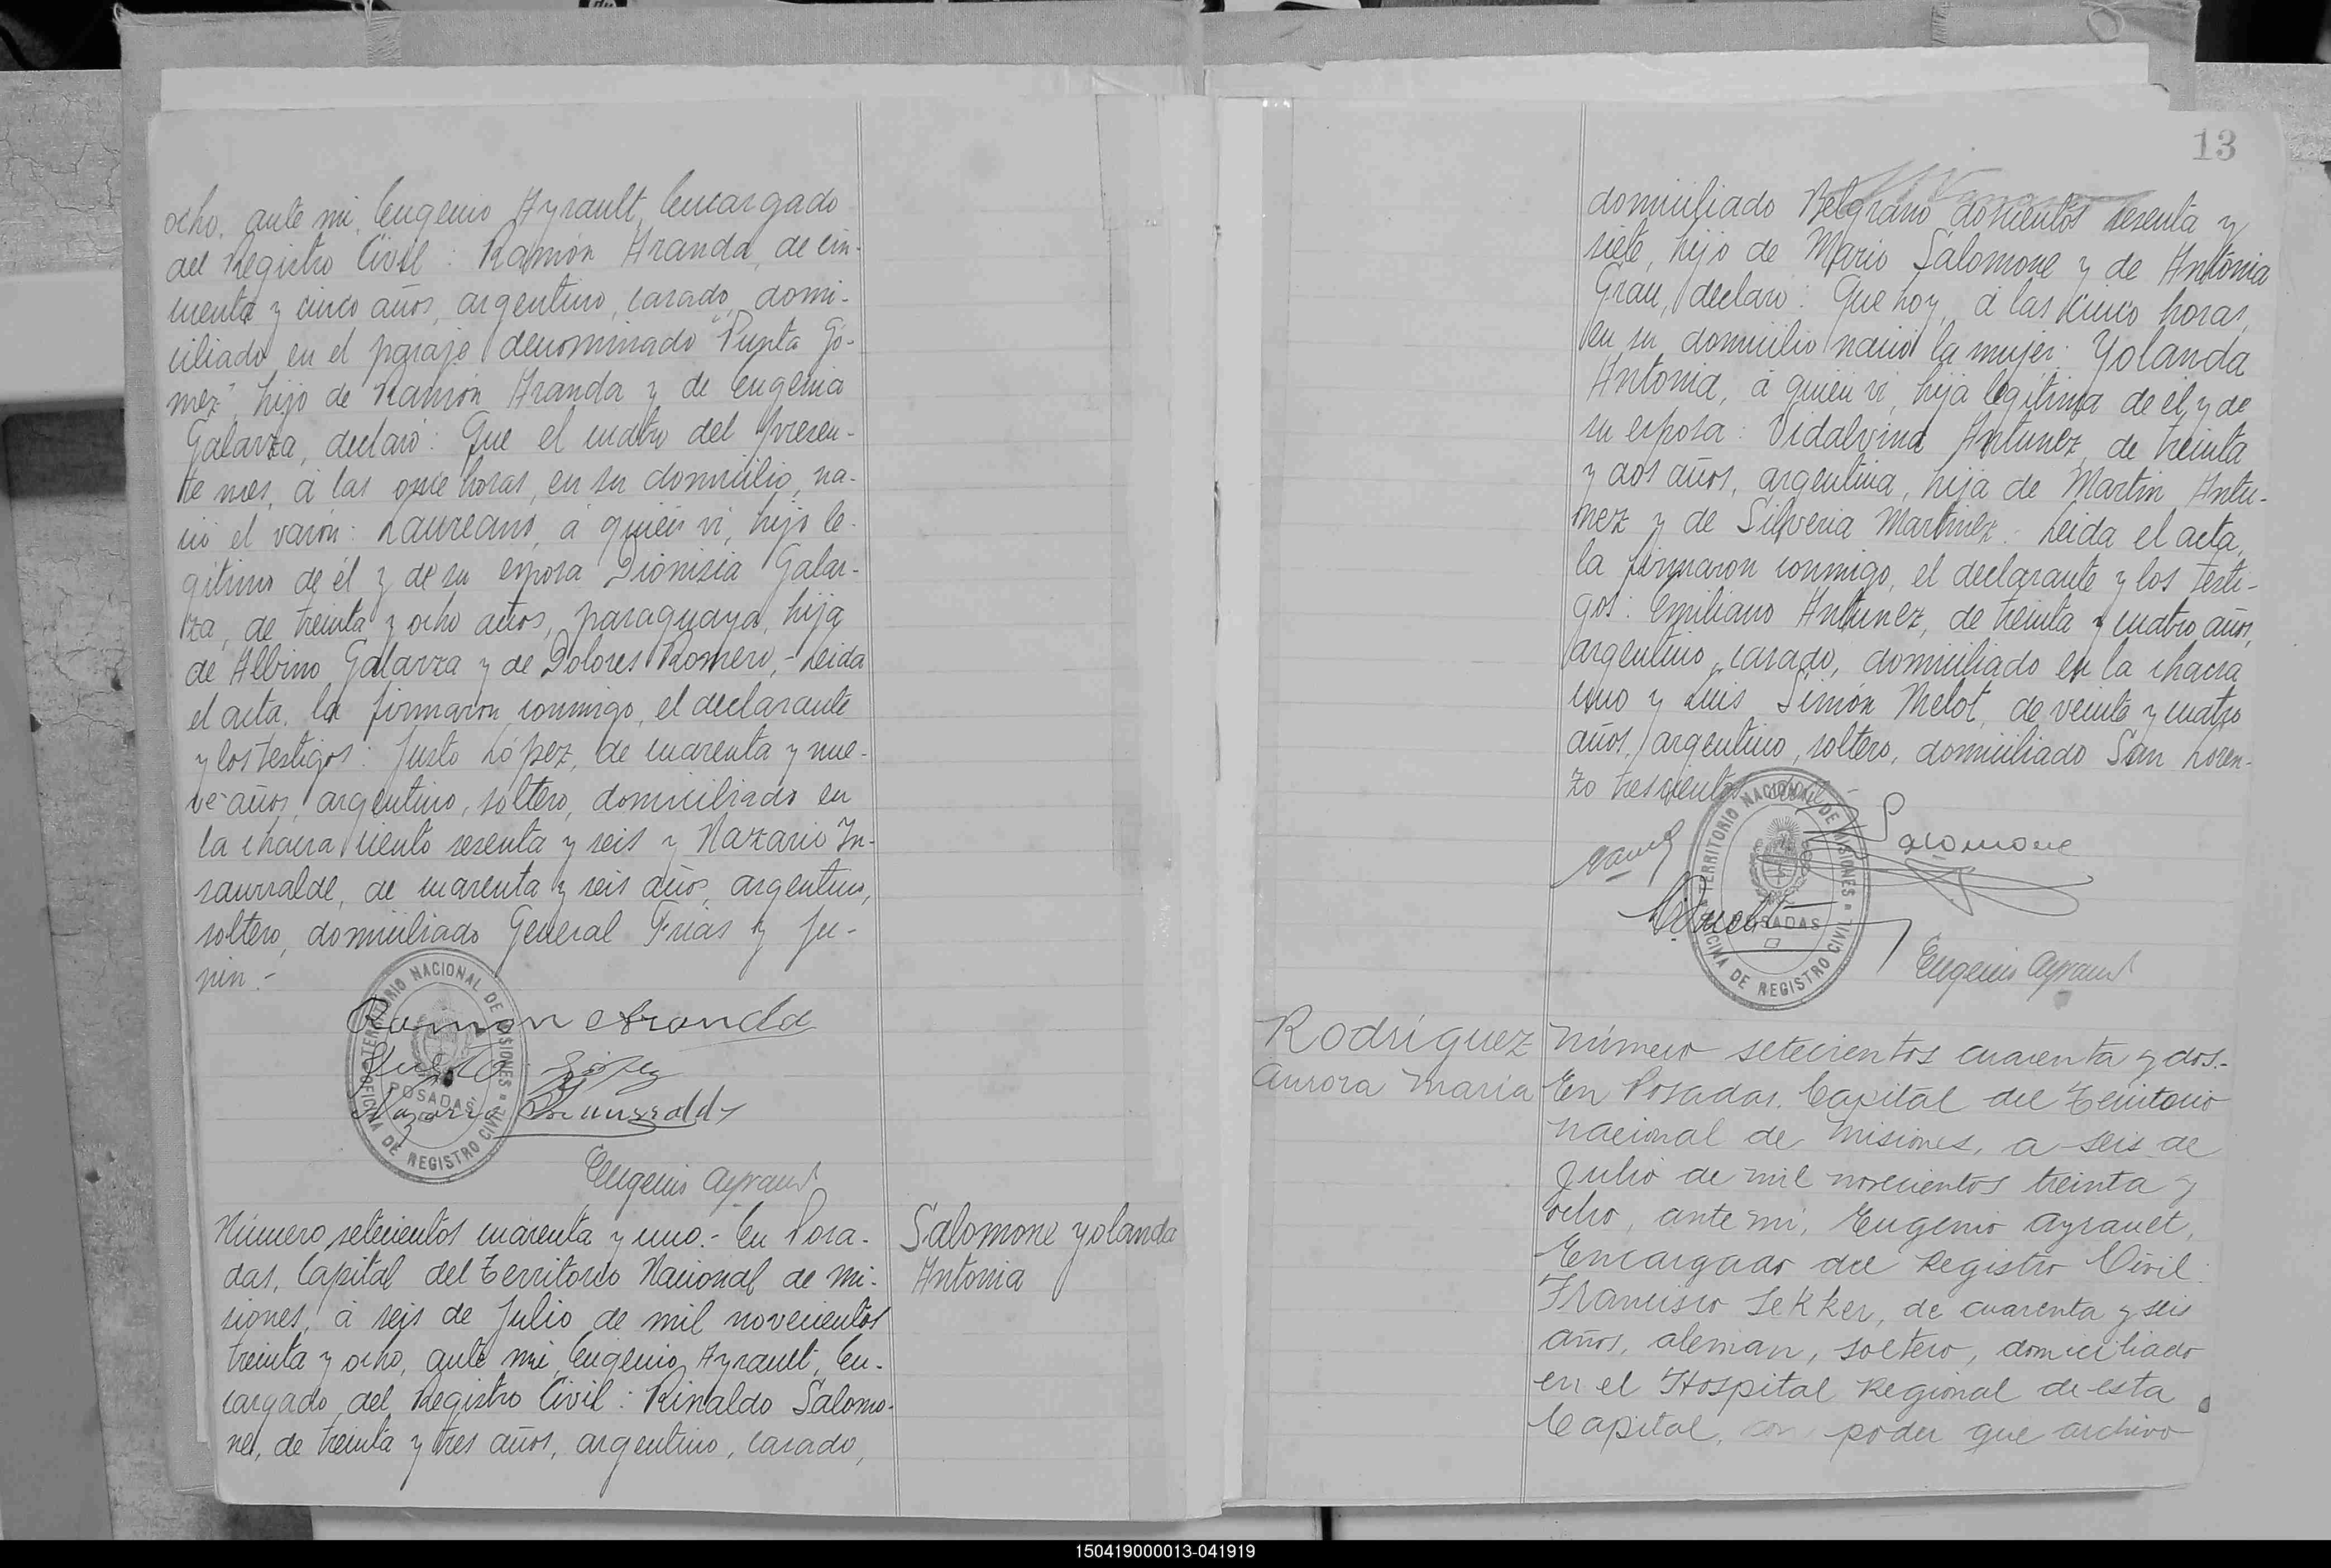 ocho, ante mi, Eugenio Ayrault, Encargado
del Registro Civil: Ramón Aranda, de cin-
cuenta y cinco años, argentino, casado, domi-
ciliado en el paraje denominado "Punta Gó-
mez", hijo de Ramón Aranda y de Eugenia
Galarza, declaró: Que el cuatro del presen-
te mes, á las once horas, en su domicilio, na-
ció el varón: Laureano, á quién vi, hijo le-
gítimo de él y de su esposa Dionisia Galar-
za, de treinta y ocho años, paraguaya, hija
de Albino Galarza y de Dolores Romero.- Leida
el acta, la firmaron conmigo, el declarante
y los testigos: Justo López, de cuarenta y nue-
ve años, argentino, soltero, domiciliado en
la chacra ciento sesenta y seis y Nazario In-
saurralde, de cuarenta y seis años, argentino,
soltero, domiciliado General Frias y Ju-
nin.-
TERRITORIO NACIONAL DE MISIONES
POSADAS
OFICINA DE REGISTRO CIVIL
Ramon Aranda
Justo López
Nazario Insaurralde
Eugenio Ayrault
Número setecientos cuarenta y uno.- En Posa-
das, Capital del Territorio Nacional de Mi-
siones, á seis de Julio de mil novecientos
treinta y ocho, ante mi, Eugenio Ayrault, En-
cargado del Registro Civil: Rinaldo Salomo-
ne, de treinta y tres años, argentino, casado,
Salomone Yolanda
Antonia
13
domiciliado Belgrano doscientos sesenta y
siete, hijo de Mario Salomone y de Antonia
Grau, declaró: Que hoy, á las cinco horas,
en su domicilio nació la mujer: Yolanda
Antonia, á quién vi, hija legítima de él y de
su esposa: Vidalvina Antunez, de treinta
y dos años, argentina, hija de Martin Antu-
nez y de Silveria Martinez.- Leida el acta,
la firmaron conmigo, el declarante y los testi-
gos: Emiliano Antunez, de treinta y cuatro años,
argentino, casado, domiciliado en la chacra
uno y Luis Simón Melot, de veinte y cuatro
años, argentino, soltero, domiciliado San Loren-
zo trescientos
TERRITORIO NACIONAL DE MISIONES
POSADAS
OFICINA DE REGISTRO CIVIL
Salomone
Eugenio Ayrault
Rodríguez
Aurora María
Número setecientos cuarenta y dos.-
En Posadas, Capital del Territorio
nacional de Misiones, a seis de
Julio de mil novecientos treinta y
ocho, ante mi, Eugenio Ayrault,
Encargado del Registro Civil:
Francisco Sekker, de cuarenta y seis
años, aleman, soltero, domiciliado
en el Hospital Regional de esta
Capital, con poder que archivo
150419000013-041919